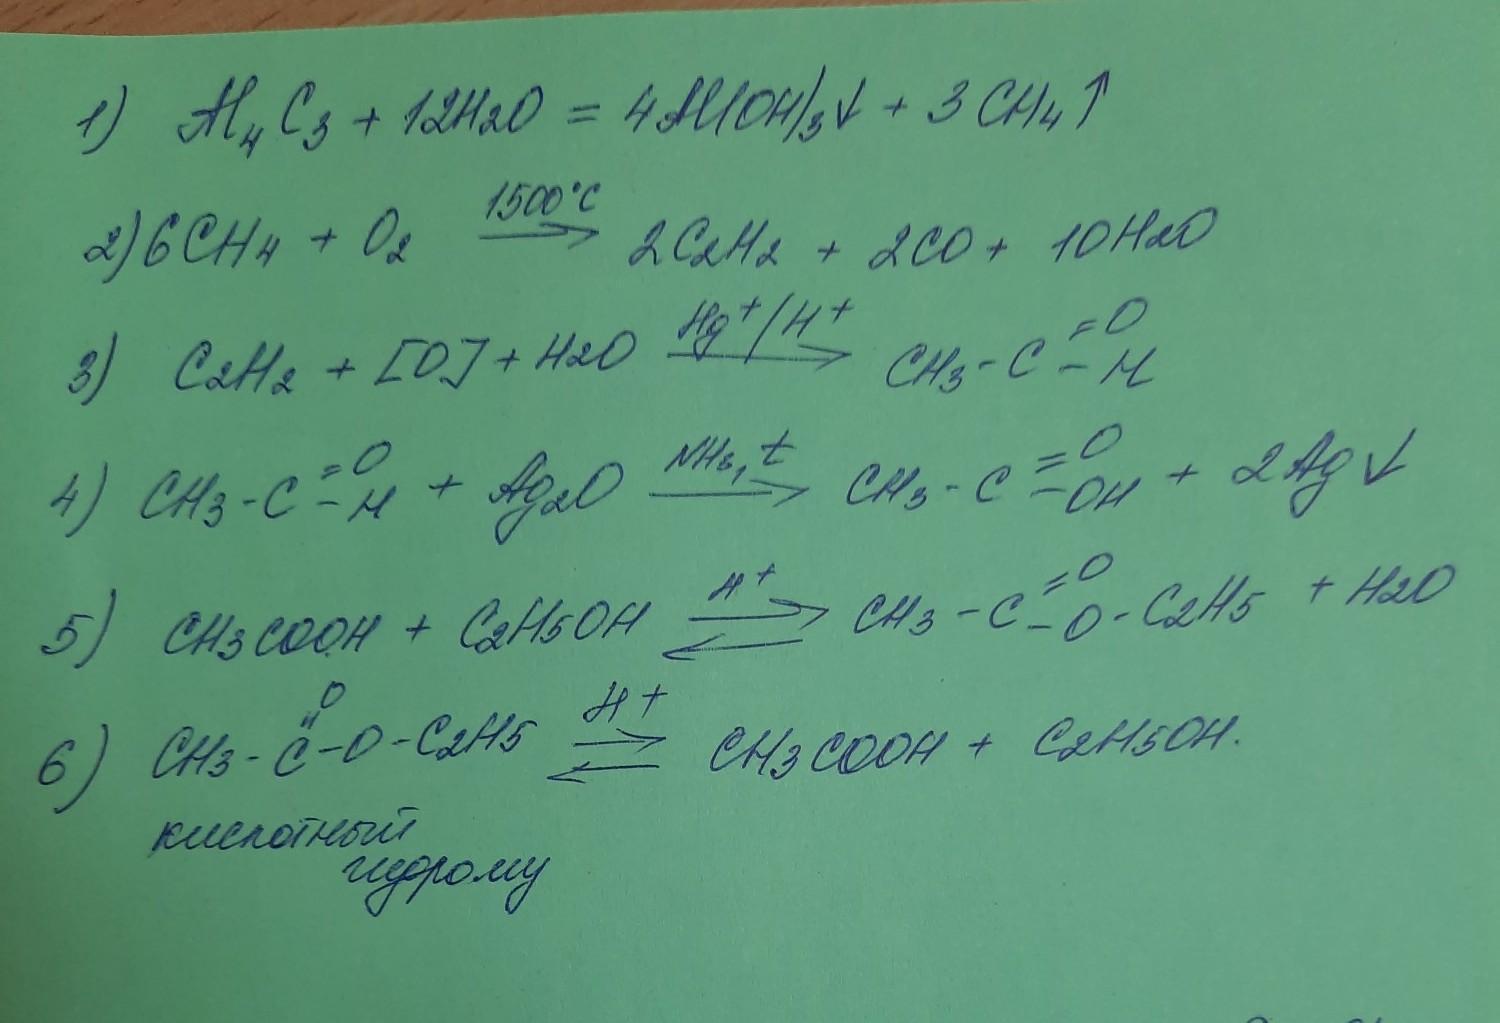 1) Al4C3 + 12H2O = 4Al(OH)3↓ + 3CH4↑
2) 6CH4 + O2 1500°C → 2C2H2 + 2CO + 10H2O
3) C2H2 + [O] + H2O Hg+/H+ → CH3-C=O-H
4) CH3-C=O-H + Ag2O NH3, t → CH3-C=O-OH + 2Ag↓
5) CH3COOH + C2H5OH H+ ⇄ CH3-C=O-O-C2H5 + H2O
6) CH3-C=O-O-C2H5 H+ ⇄ CH3COOH + C2H5OH.
кислотный
гидролиз